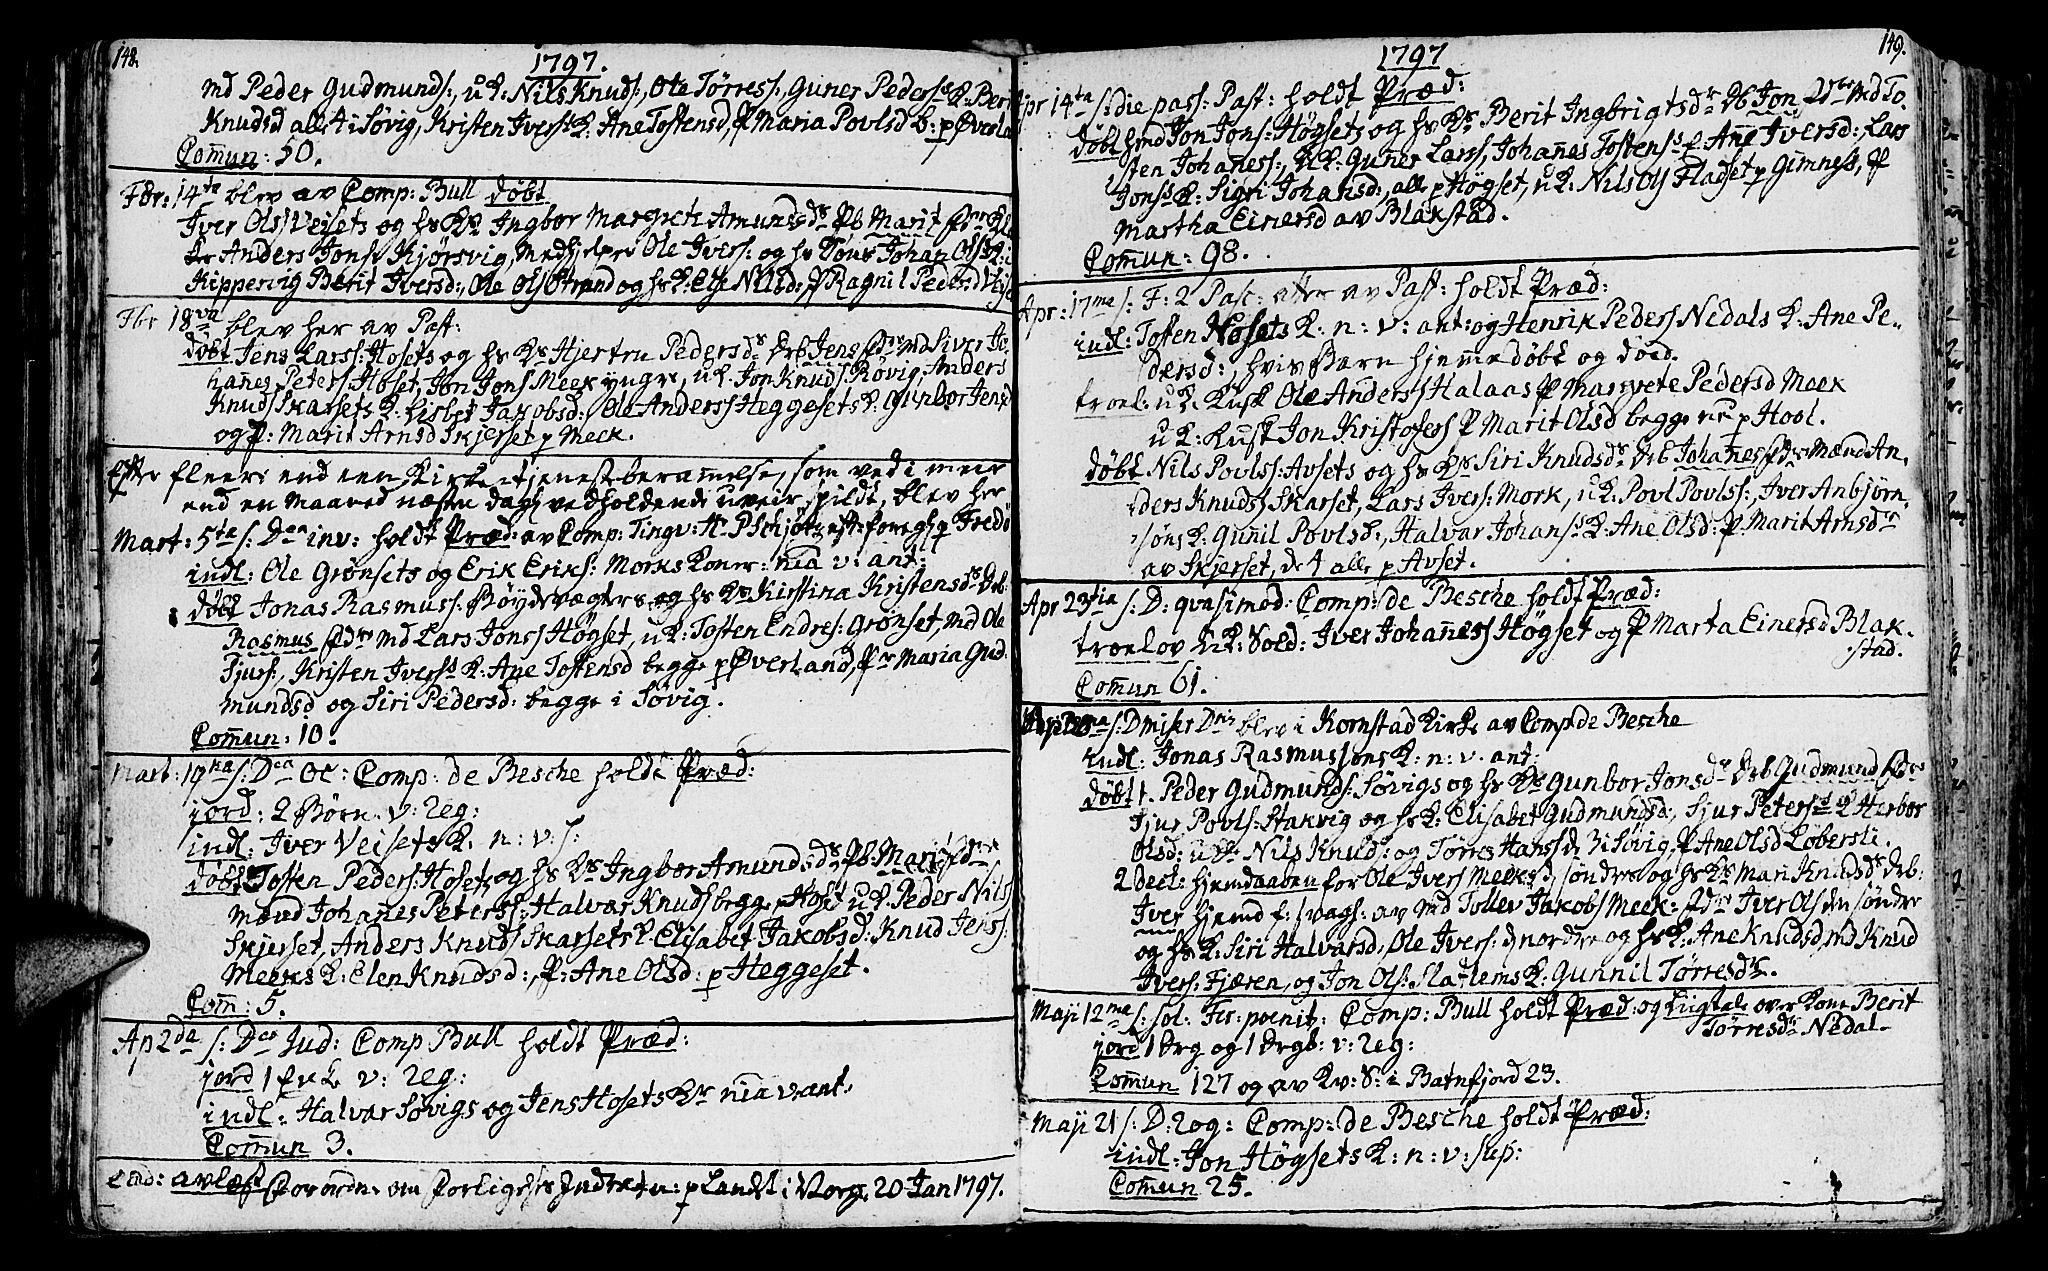 148.
1797.
md Peder Gudmunds:, u.K: Nils Knuds:, Ole Tørres:, Guner Peders K: Berit
Knudsd alle 4 i Søvig, Kristen Ivers K: Ane Tostensd, P Maria Povlsd b: p Øverland
Comun: 50.
Fbr: 14ta blev av Comp: Bull døbt
Iver Ols Veisets og hs Ks Ingbor Margrete Amundsdr Pb Marit
Anders Jons Kjørsvig, Medhjelper Ole Ivers: og hs Søns Johan Ols K:
Kippervig Berit Iversd:, Ole Ols Strand og hs K: Else Nilsd: P Ragnil Pedersd Veiset
Fbr 18va blev her av Past:
døbt Jens Larss: Hosets og hs Ks Hjertru Pedersdr Drb Jens Fdre Md Siver Jo
hanes Peters: Hoset, Jon Jons Meek yngre, u.K: Jon Knuds Røvig, Anders
Knuds Skarsets K: Lisbet Jakobsd:, Ole Anderss Heggesets K: Gunbor Jensd
og P: Marit Arnsd Skjerset p Meek.
Efter fleere end een Kirketjenest-beramelse, som ved i meir
end en Maaned næsten dagl vedholdende uveir spildt, blev her
Mart: 5ta S: Dca inv: holdt Præd: av Comp: Tingv: Hr P Schjøtz eft: foregs p Fredø
indl: Ole Grønsets og Erik Eriks: Morks Koner: nia v: ant:
døbt Jonas Rasmuss: Bøydevægters og hs Ks Kirstina Kristensdr Drb:
Rasmus Fdre Md Lars Jons Høgset, u.K: Tosten Endres: Grønset, Md Ole
Sjurs:, Kristen Ivers K: Ane Tostensd begge p Øverland, Pr Maria Gud
mundsd og Siri Pedersd: begge i Søvig.
Comun: 10.
Mart: 19na S: Dca Oc: Comp: de Besche holdt Præd:
jord: 2 Børn v: Reg:
indl: Iver Veisets K. n: v: S:
døbt Tosten Peders: Hosets og hs Ks Ingbor Amundsdr Pb Mari Fdre
Mænd Johanes Peterss:, Halvar Knuds begge p Hoset u.K: Peder Nils
Skjerset, Anders Knuds Skarsets K: Elisabet Jakobsd: Knud Jenss:
Meeks K: Elen Knudsd:, P: Ane Olsd: p Heggeset.
Com: 5.
Ap 2da S: Dca Jud: Comp Bull holdt Præd:
jord 1 v: Reg:
indl: Halvar Søvigs og Jens Hosets Kr nia v: ant:
Comun 3.
End: avlæst Forordn: om Forligelses Indretn: p Landet i Norg. 20 Jan 1797.
149.
1797
Apr 14ta S: die pass: Past: holdt Præd:
døbt hmd Jon Jons: Høgsets og hs Ks Berit Ingbrigtsdr Db Jon Fdre Md To
sten Johaness:, u.K: Guner Larss, Johanes Tostens f Ane Iversd: Lars
Jons K: Sigri Johansd:, alle p Høgset, u.K: Nils Ols Fladset p Gimnes, P
Martha Einersd av Blakstad.
Comun: 98.
Apr: 17ma S: F: 2 Pasc: atter av Past: holdt Præd:
indl: Tosten Hosets K: n: v: ant: og Henrik Peders Nedals K: Ane Pe
dersd:, hvis Barn hjemmedøbt og doed.
troel: u.K. Kusk Ole Anderss Halaas P Margrete Pedersd Meek
u K: Kusk Jon Kristofers P Marit Olsd begge nu p Hool.
døbt Nils Povlss: Avsets og hs Ks Siri Knudsdr Drb Johanes Fdre Mænd An
ders Knuds Skarset, Lars Ivers: Mork, u.K: Povl Povlss:, Iver Anbjørn
søns K: Gunil Povlsd:, Halvar Johans K: Ane Olsd: P Marit Arnsdr
av Skjerset, de 4 alle p Avset.
Apr 23tia S: D: qvasimod: Comp: de Besche holdt Præd:
troelov u.K: Sold: Iver Johaness Høgset og P Marta Einersd Blak
stad.
Comun 61.
S: D miser Dni blev i Kornstad Kirke av Comp de Besche
indl: Jonas Rasmussøns K: n: v. ant:
døbt 1. Peder Gudmunds: Søvigs og hs Ks Gunbor Jonsdr Drb Gudmund Fdre
Sjur Povls: Hakvig og hs K: Elisabet Gudmundsd:, Sjur Peters K Herbor
Olsd: u.K: Nils Knuds: og Tørres Hans de 3 i Søvig, P Ane Olsd Lobersli.
2 decl: hjemdaaben for Ole Ivers Meek d, søndre og hs Ks Mari Knudsdr Drb:
Iver hjemd f: svagh: av Md Toller Jakobs Meek: Fdre Iver Ols den søndre
og hs K: Siri Halvarsd, Ole Ivers: d nordre og hs K: Ane Knudsd, Md Knud
Ivers: Fjæren, og Jon Ols: Slatlems K: Gunnil Tørresdr.
Maji 12ma S: sol: Fer: poenit: Comp: Bull holdt Præd: og Ligtale over Kone Berit
Tørresdr Nedal
jord 1 Drg og 1 Drgb: v: Reg:
Comun 127 og av Kv: S: i Batnfjord 23.
Maji 21 S: D: Rog: Comp: de Besche holdt Præd:
indl: Jon Høgsets K: n: v: sep:
Comun 25.